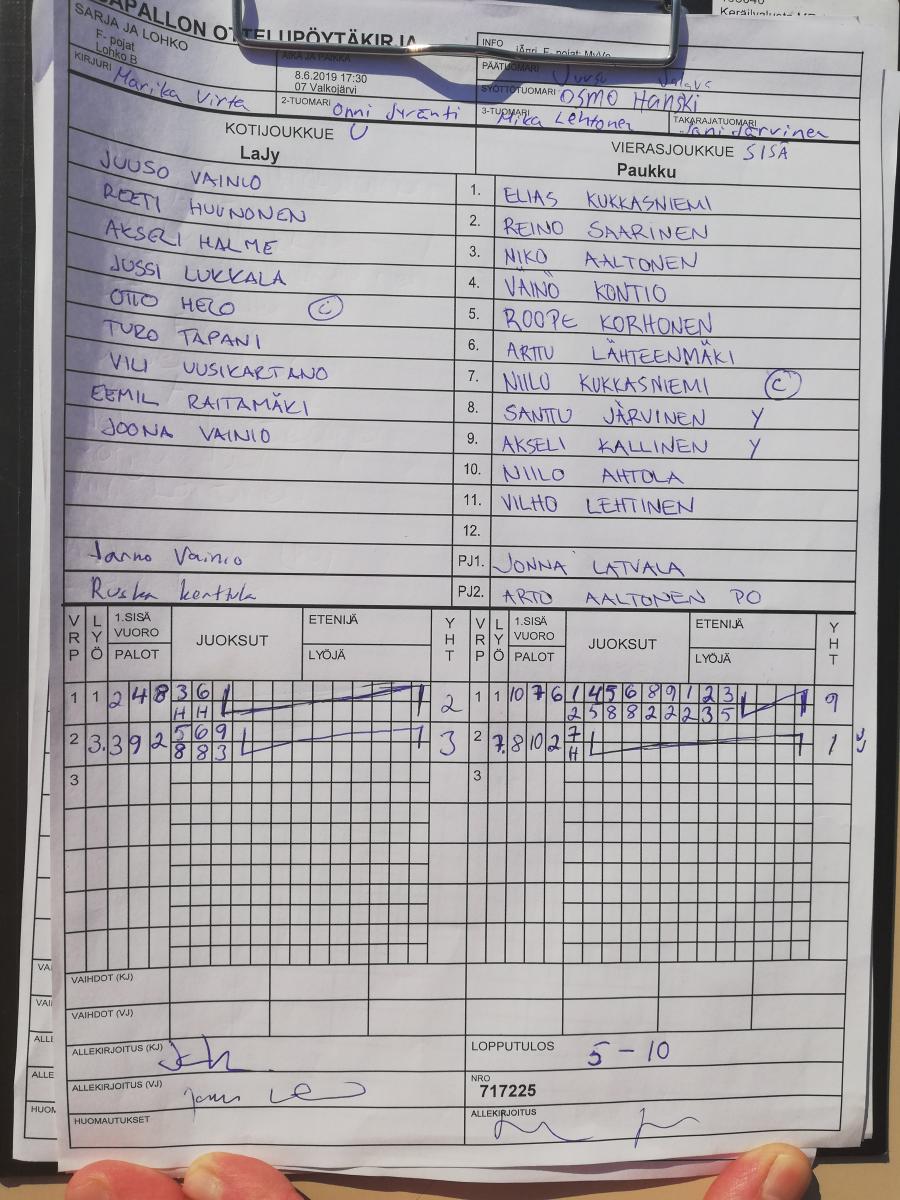 APALLON OTTELUPÖYTÄKIRJA
SARJA JA LOHKO
F- pojat
Lohko B
KIRJURI Marika Virta
AIKA JA PAIKKA
8.6.2019 17:30
07 Valkojärvi
2-TUOMARI Onni Jyränti
INFO
F- pojat: MyVe
PÄÄTUOMARI
SYÖTTÖTUOMARI OSMO Hanski
3-TUOMARI Mika Lehtonen
TAKARAJATUOMARI Jani Järvinen
KOTIJOUKKUE U
LaJy
VIERASJOUKKUE SISÄ
Paukku
JUUSO VAINIO 1. ELIAS KUKKASNIEMI
ROETI HUUNONEN 2. REINO SAARINEN
AKSELI HALME 3. NIKO AALTONEN
JUSSI LUKKALA 4. VÄINÖ KONTIO
OTTO HELO C 5. ROOPE KORHONEN
TURO TAPANI 6. ARTTU LÄHTEENMÄKI
VILI UUSIKARTANO 7. NIILO KUKKASNIEMI C
EEMIL RAITAMÄKI 8. SANTTU JÄRVINEN Y
JOONA VAINIO 9. AKSELI KALLINEN Y
10. NIILO AHTOLA
11. VILHO LEHTINEN
12.
Jarno Vainio PJ1. JONNA LATVALA
Ruska Kerttula PJ2. ARTO AALTONEN PO
VRP LYÖ 1.SISÄ VUORO PALOT JUOKSUT ETENIJÄ LYÖJÄ YHT VRP LYÖ 1.SISÄ VUORO PALOT JUOKSUT ETENIJÄ LYÖJÄ YHT
1 1 2 4 8 3 6 2 1 1 10 7 6 1 4 5 6 8 9 1 2 3 9
H H 2 5 8 8 2 2 2 3 5
2 3. 3 9 2 5 6 9 3 2 7. 8 10 2 7 1
8 8 3 H
3 3
VAIHDOT (KJ)
VAIHDOT (VJ)
ALLEKIRJOITUS (KJ)
LOPPUTULOS 5 - 10
ALLEKIRJOITUS (VJ)
NRO
717225
HUOMAUTUKSET
ALLEKIRJOITUS